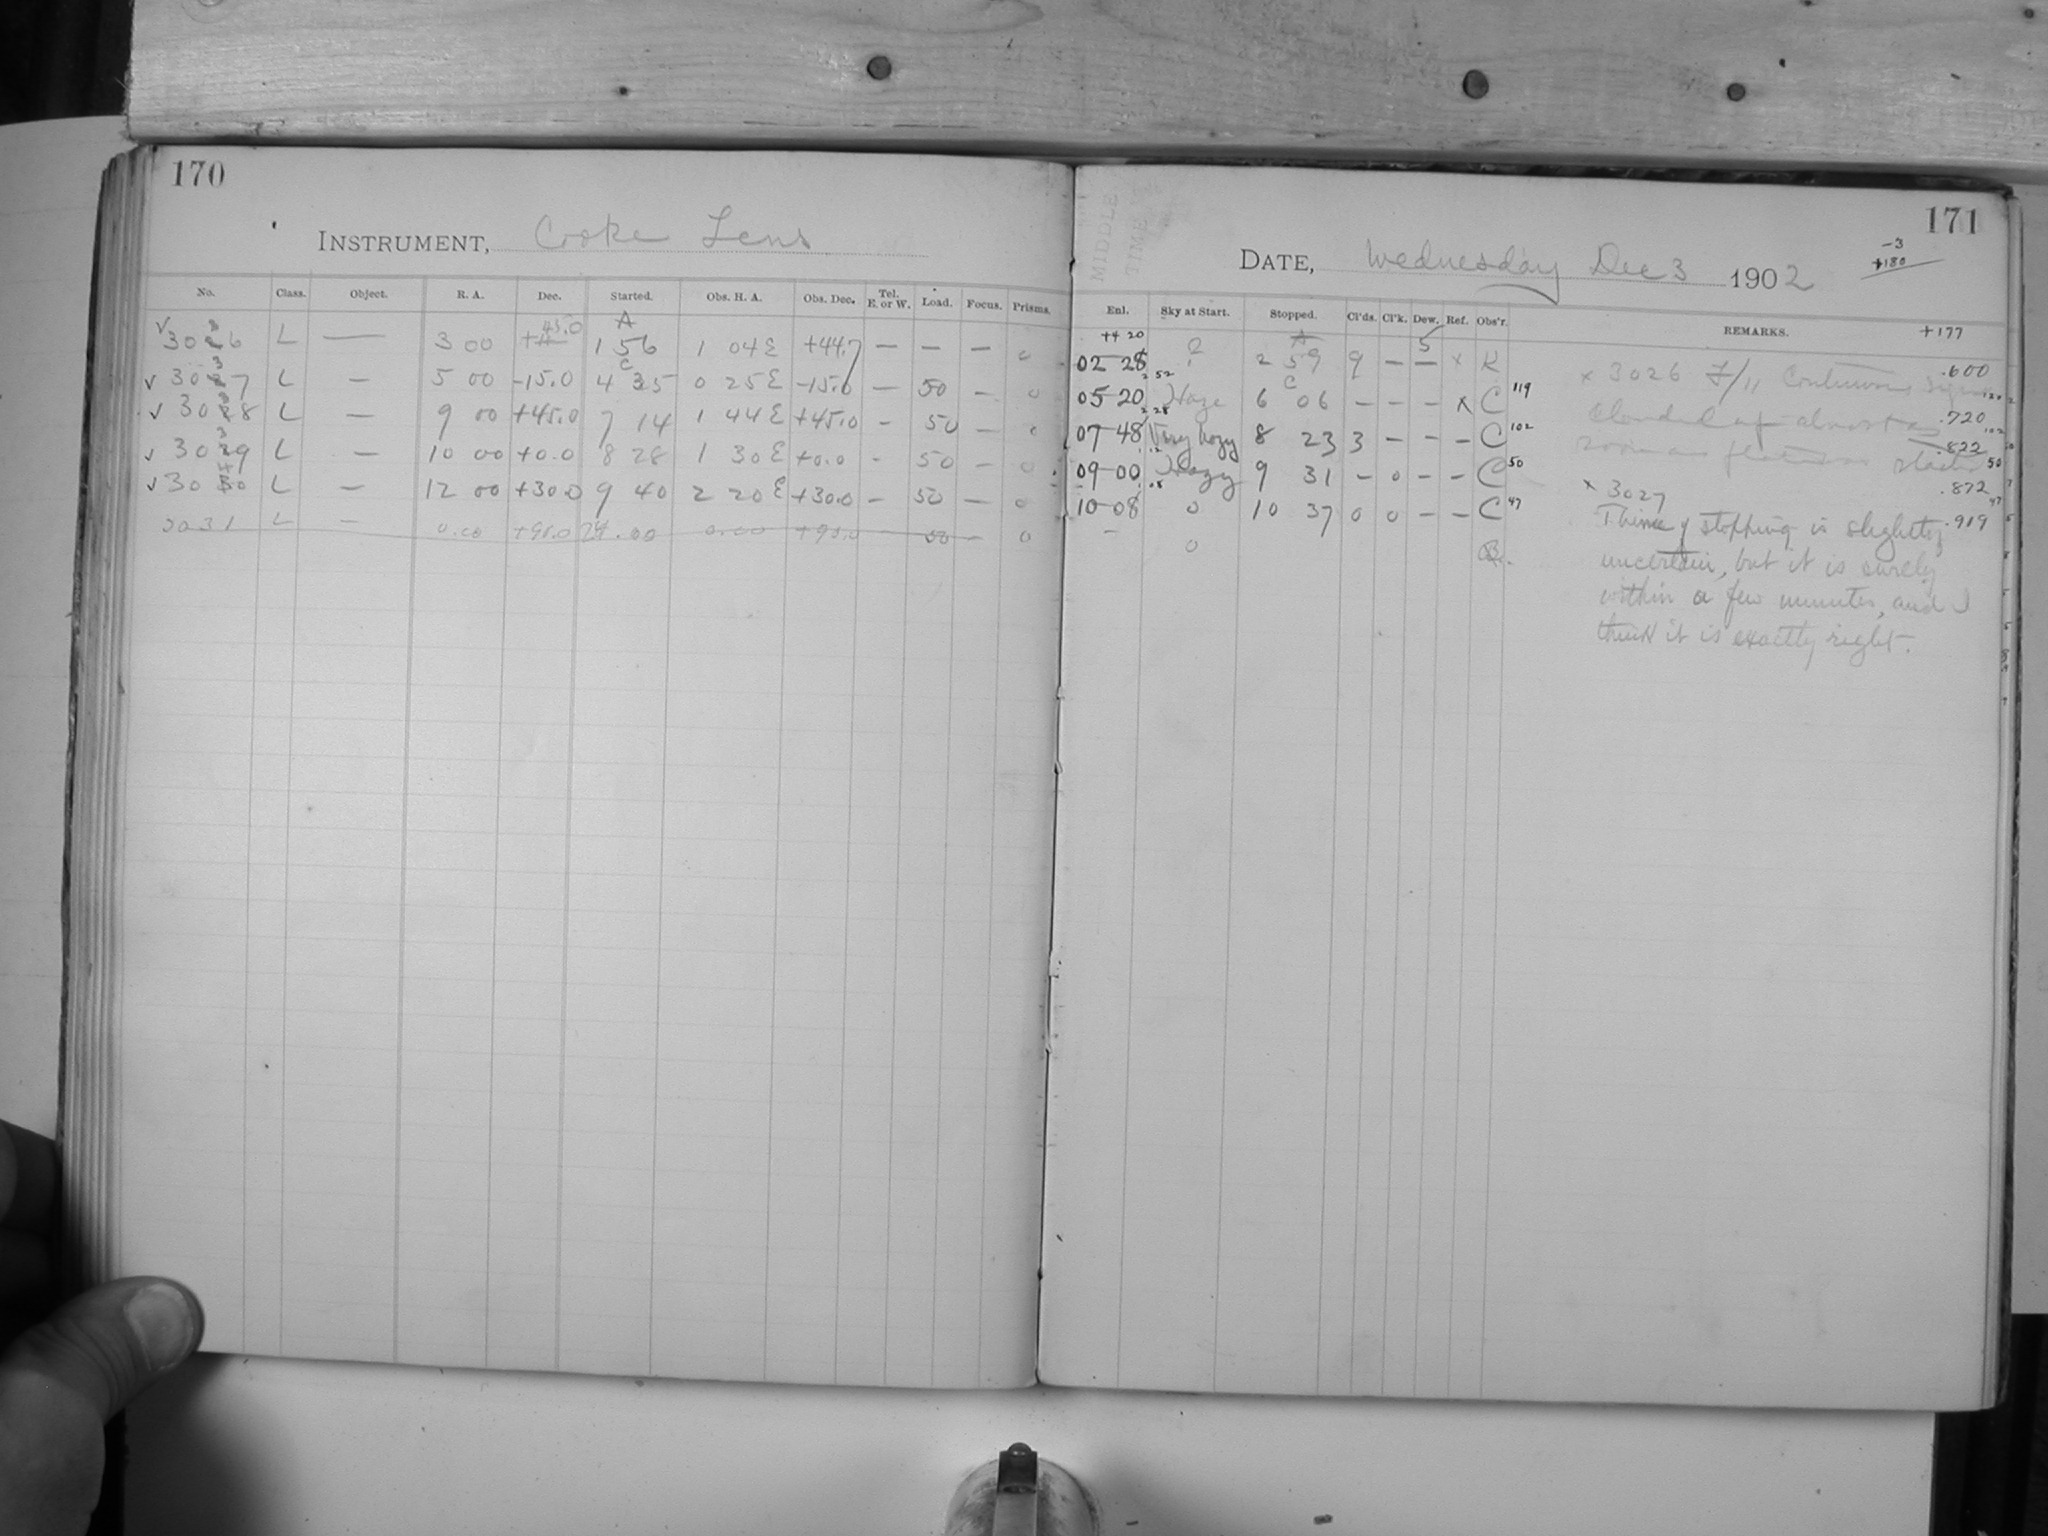 170
INSTRUMENT, Cooke Lens
No. Class. Object. R. A. Dec. Started. Obs. H. A. Obs. Dec. Tel. E. or W. Load. Focus. Prisms.
L — 3 00 +45.0 A 1 56 1 04 E +44.7 — — — 0
L — 5 00 -15.0 C 4 35 0 25 E -15.0 — 50 — 0
L — 9 00 +45.0 7 14 1 44 E +45.0 - 50 —
L — 10 00 +0.0 8 28 1 30 E +0.0 - 50 — 0
L — 12 00 +30.0 9 40 2 20 E +30.0 — 50 — 0
3031 L — 0.00 0.00 50 — 0
MIDDLE
TIME
171
DATE, Wednesday Dec 3 1902
-3
+180
+177
Enl. Sky at Start. Stopped. Cl'ds. Cl'k. Dew. Ref. Obs'r. REMARKS.
+4 20
02-28 A 2 59 9 — 5 — x K .600
05-20 Haze C 6 06 — — — x C 119 .720
07-48 Very hazy 8 23 3 — — — C 102 .822
09-00 Hazy 9 31 — 0 — — C 50 .872
10-08 0 10 37 0 0 — — C 47 .919
— 0
x 3026 F/11 Continuous
clouded up almost as
soon as
x 3027
Time of stopping is slightly
uncertain, but it is surely
within a few minutes, and I
think it is exactly right.